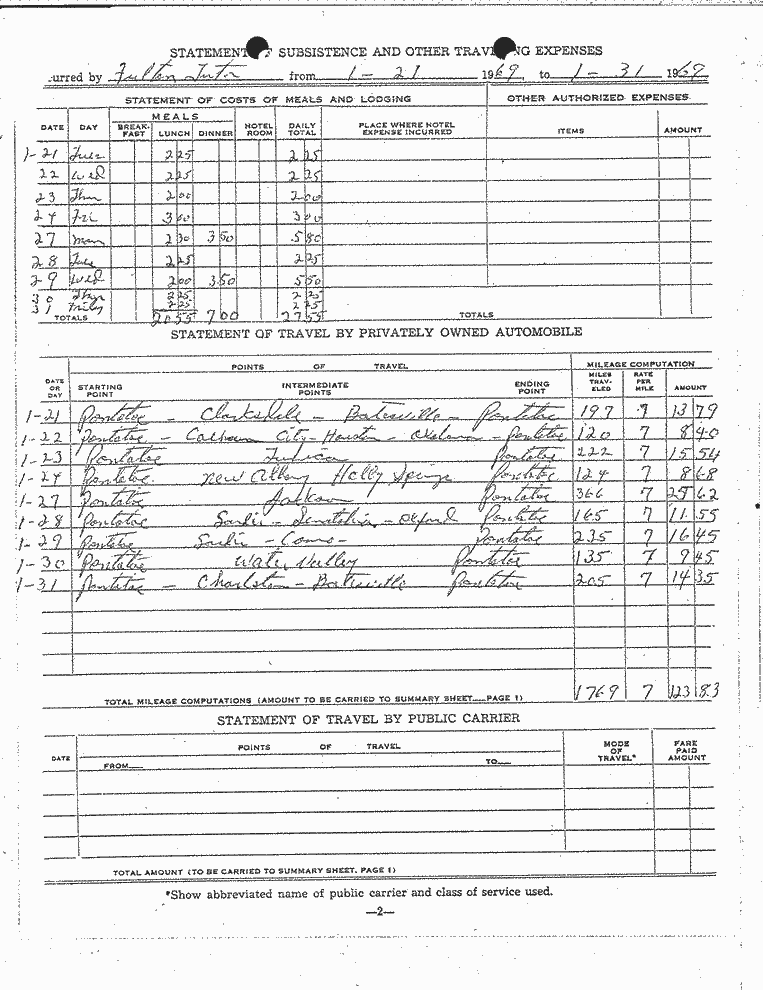 STATEMENT OF SUBSISTENCE AND OTHER TRAVELING EXPENSES
urred by Fulton Tutor from 1-21 1969 to 1-31 1969
STATEMENT OF COSTS OF MEALS AND LODGING OTHER AUTHORIZED EXPENSES
MEALS
DATE DAY BREAK-FAST LUNCH DINNER HOTEL ROOM DAILY TOTAL PLACE WHERE HOTEL EXPENSE INCURRED ITEMS AMOUNT
1-21 Tues 2 25 2 25
22 Wed 2 25 2 25
23 Thur 2 00 2 00
24 Fri 3 00 3 00
27 Mon 2 30 3 50 5 80
28 Tues 2 25 2 25
29 Wed 2 00 3 50 5 50
30 Thur 2 25 2 25
31 Friday 2 25 2 25
TOTALS 20 55 7 00 27 55 TOTALS
STATEMENT OF TRAVEL BY PRIVATELY OWNED AUTOMOBILE
POINTS OF TRAVEL MILEAGE COMPUTATION
DATE OR DAY STARTING POINT INTERMEDIATE POINTS ENDING POINT MILES TRAV-ELED RATE PER MILE AMOUNT
1-21 Pontotoc - Clarksdale - Batesville - Pontotoc 197 7 13 79
1-22 Pontotoc - Calhoun City - Houston - Okolona - Pontotoc 120 7 8 40
1-23 Pontotoc Pontotoc 222 7 15 54
1-24 Pontotoc New Albany Holly Springs Pontotoc 124 7 8 68
1-27 Pontotoc Jackson Pontotoc 366 7 25 62
1-28 Pontotoc Sardis - Senatobia - Oxford Pontotoc 165 7 11 55
1-29 Pontotoc Sardis - Como - Pontotoc 235 7 16 45
1-30 Pontotoc Water Valley Pontotoc 135 7 9 45
1-31 Pontotoc - Charleston - Batesville Pontotoc 205 7 14 35
TOTAL MILEAGE COMPUTATIONS (AMOUNT TO BE CARRIED TO SUMMARY SHEET PAGE 1) 1769 7 123 83
STATEMENT OF TRAVEL BY PUBLIC CARRIER
DATE POINTS OF TRAVEL MODE OF TRAVEL* FARE PAID AMOUNT
FROM TO
TOTAL AMOUNT (TO BE CARRIED TO SUMMARY SHEET, PAGE 1)
*Show abbreviated name of public carrier and class of service used.
—2—